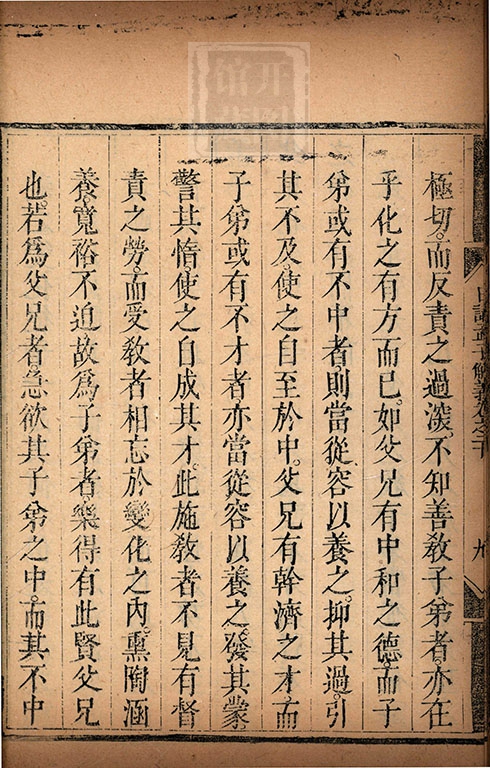 極切而反責之過深。不知善敎子弟者。亦在
乎化之有方而已。如父兄有中和之德。而子
弟或有不中者。則當從容以養之。抑其過。引
其不及。使之自至於中。父兄有幹濟之才。而
子弟或有不才者。亦當從容以養之。發其蒙。
警其惰。使之自成其才。此施敎者不見有督
責之勞。而受敎者相忘於變化之內。熏陶涵
養。寬裕不迫。故爲子弟者。樂得有此賢父兄
也。若爲父兄者。急欲其子弟之中。而其不中
日講孟子解義卷之二十
九